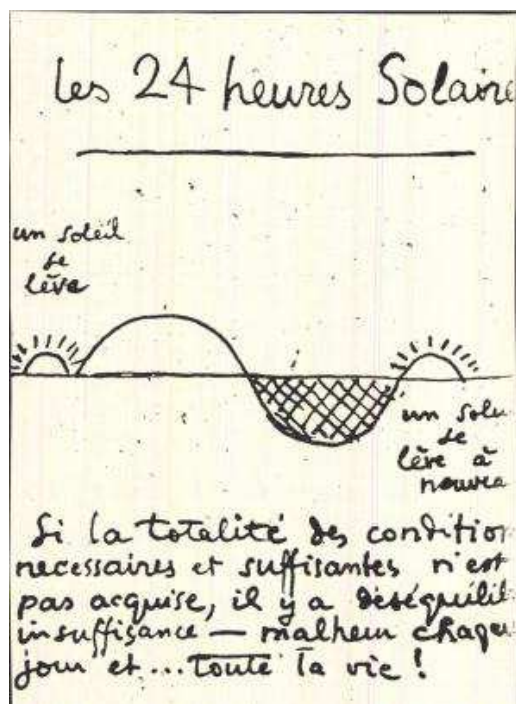 Les 24 heures Solaire
un soleil
se
lève
un sole
se
lève à
nouvea
Si la totalité des condition
necessaires et suffisantes n'est
pas acquise, il y a deséquilib
insuffisance — malheur chaque
jour et ... toute la vie !